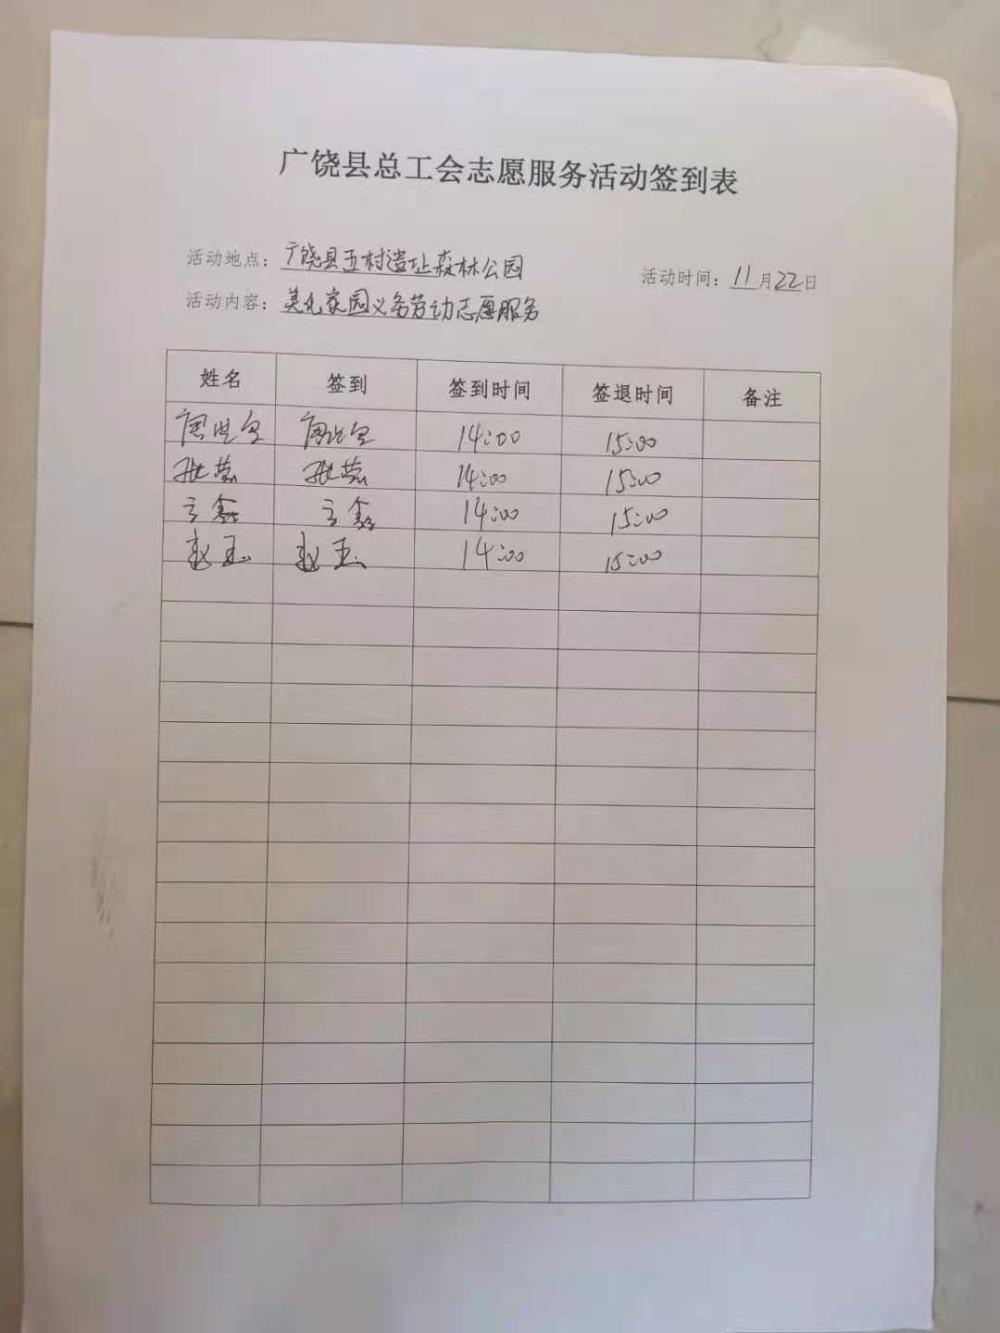 广饶县总工会志愿服务活动签到表
活动地点：广饶县五村遗址森林公园 活动时间：11月22日
活动内容：美化家园义务劳动志愿服务
姓名 签到 签到时间 签退时间 备注
14:00 15:00
张蕊 张蕊 14:00 15:00
鑫 鑫 14:00 15:00
赵玉 赵玉 14:00 15:00